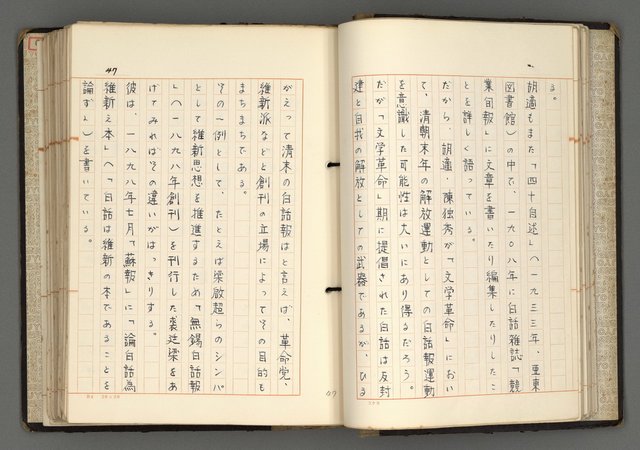 る。
胡適もまた「四十自述」(一九三三年、亜東
図書館)の中で、一九〇八年に白話雑誌「競
業旬報」に文章を書いたり編集したりしたこ
とを詳しく語っている。
だから、胡適・陳独秀が「文学革命」におい
て、清朝末年の解放運動としての白話報運動
を意識した可能性は大いにあり得るだろう。
だが「文学革命」期に提倡された白話は反封
建と自我の解放としての武器であるが、ひる
47
がえって清末の白話報はと言えば、革命党、
維新派などと創刊の立場によってその目的も
まちまちである。
その一例として、たとえば梁啟超らのシンパ
として維新思想を推進するため「無錫白話報
」(一八九八年創刊)を刊行した裘廷梁をあ
げてみればその違いがはっきりする。
彼は、一八九八年七月「蘇報」に「論白話為
維新之本」(白話は維新の本であることを
論ず」)を書いている。